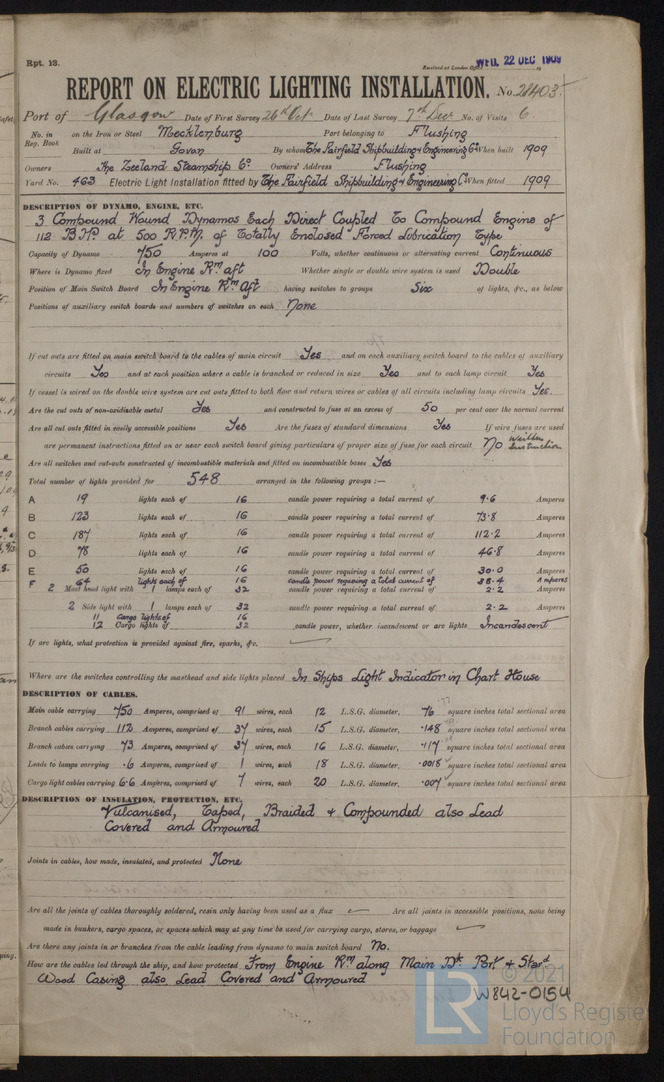 Rpt. 13.
Received at London Office WED. 22 DEC 1909
REPORT ON ELECTRIC LIGHTING INSTALLATION. No. 28403
Port of Glasgow Date of First Survey 26th Oct Date of Last Survey 7th Dec No. of Visits 6.
No. in Reg. Book on the Iron or Steel Mecklenburg Port belonging to Flushing
Built at Govan By whom The Fairfield Shipbuilding & Engineering Co. When built 1909
Owners The Zeeland Steamship Co. Owners' Address Flushing
Yard No. 463 Electric Light Installation fitted by The Fairfield Shipbuilding & Engineering Co. When fitted 1909
DESCRIPTION OF DYNAMO, ENGINE, ETC.
3 Compound Wound Dynamos Each Direct Coupled To Compound Engine of
112 B.H.P. at 500 R.P.M. of Totally Enclosed Forced Lubrication Type
Capacity of Dynamo 750 Amperes at 100 Volts, whether continuous or alternating current Continuous
Where is Dynamo fixed In Engine Rm aft Whether single or double wire system is used Double
Position of Main Switch Board In Engine Rm Aft having switches to groups Six of lights, &c., as below
Positions of auxiliary switch boards and numbers of switches on each None
If cut outs are fitted on main switch board to the cables of main circuit Yes and on each auxiliary switch board to the cables of auxiliary
circuits Yes and at each position where a cable is branched or reduced in size Yes and to each lamp circuit Yes
If vessel is wired on the double wire system are cut outs fitted to both flow and return wires or cables of all circuits including lamp circuits Yes.
Are the cut outs of non-oxidizable metal Yes and constructed to fuse at an excess of 50 per cent over the normal current
Are all cut outs fitted in easily accessible positions Yes Are the fuses of standard dimensions Yes If wire fuses are used
are permanent instructions fitted on or near each switch board giving particulars of proper size of fuse for each circuit No written Instruction
Are all switches and cut-outs constructed of incombustible materials and fitted on incombustible bases Yes
Total number of lights provided for 548 arranged in the following groups :—
A 19 lights each of 16 candle power requiring a total current of 9.6 Amperes
B 123 lights each of 16 candle power requiring a total current of 73.8 Amperes
C 187 lights each of 16 candle power requiring a total current of 112.2 Amperes
D 78 lights each of 16 candle power requiring a total current of 46.8 Amperes
E 50 lights each of 16 candle power requiring a total current of 30.0 Amperes
F 64 lights each of 16 candle power requiring a total current of 38.4 Amperes
2 Mast head light with 1 lamps each of 32 candle power requiring a total current of 2.2 Amperes
2 Side light with 1 lamps each of 32 candle power requiring a total current of 2.2 Amperes
11 Cargo lights of 16
12 Cargo lights of 32 candle power, whether incandescent or arc lights Incandescent
If arc lights, what protection is provided against fire, sparks, &c.
Where are the switches controlling the masthead and side lights placed In Ships Light Indicator in Chart House
DESCRIPTION OF CABLES.
Main cable carrying 750 Amperes, comprised of 91 wires, each 12 L.S.G. diameter, .76 square inches total sectional area
Branch cables carrying 112 Amperes, comprised of 37 wires, each 15 L.S.G. diameter, .148 square inches total sectional area
Branch cables carrying 73 Amperes, comprised of 37 wires, each 16 L.S.G. diameter, .117 square inches total sectional area
Leads to lamps carrying .6 Amperes, comprised of 1 wires, each 18 L.S.G. diameter, .0018 square inches total sectional area
Cargo light cables carrying 6.6 Amperes, comprised of 7 wires, each 20 L.S.G. diameter, .007 square inches total sectional area
DESCRIPTION OF INSULATION, PROTECTION, ETC.
Vulcanised, Taped, Braided & Compounded also Lead
Covered and Armoured
Joints in cables, how made, insulated, and protected None
Are all the joints of cables thoroughly soldered, resin only having been used as a flux Are all joints in accessible positions, none being
made in bunkers, cargo spaces, or spaces which may at any time be used for carrying cargo, stores, or baggage
Are there any joints in or branches from the cable leading from dynamo to main switch board No.
How are the cables led through the ship, and how protected From Engine Rm along Main Dk Port & Stard
Wood Casing also Lead Covered and Armoured
W842-0154
LR © 2021
Lloyd's Register
Foundation